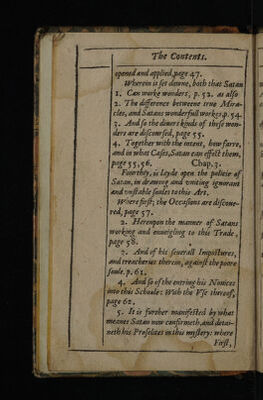 The Contents.
opened and applied, page 47.
Wherein is set downe, both that Satan
1. Can worke wonders, p. 52. as also
2. The difference betweene true Mira-
cles, and Satans wonderfull workes, p. 54.
3. And so the divers kinds of these won-
ders are discoursed, page 55.
4. Together with the intent, how farre,
and in what Cases, Satan can effect them,
page 55, 56. Chap. 3.
Fourthly, is layde open the policie of
Satan, in drawing and uniting ignorant
and unstable soules to this Art.
Where first; the Occasions are discove-
red, page 57.
2. Hereupon the manner of Satans
working and enveigling to this Trade,
page 58.
3. And of his severall Impostures,
and treacheries therein, against the poore
soule. p. 61.
4. And so of the entring his Novices
into this Schoole: With the Vse thereof,
page 62.
5. It is further manifested by what
meanes Satan now confirmeth, and detai-
neth his Proselites in this mystery: where
First,